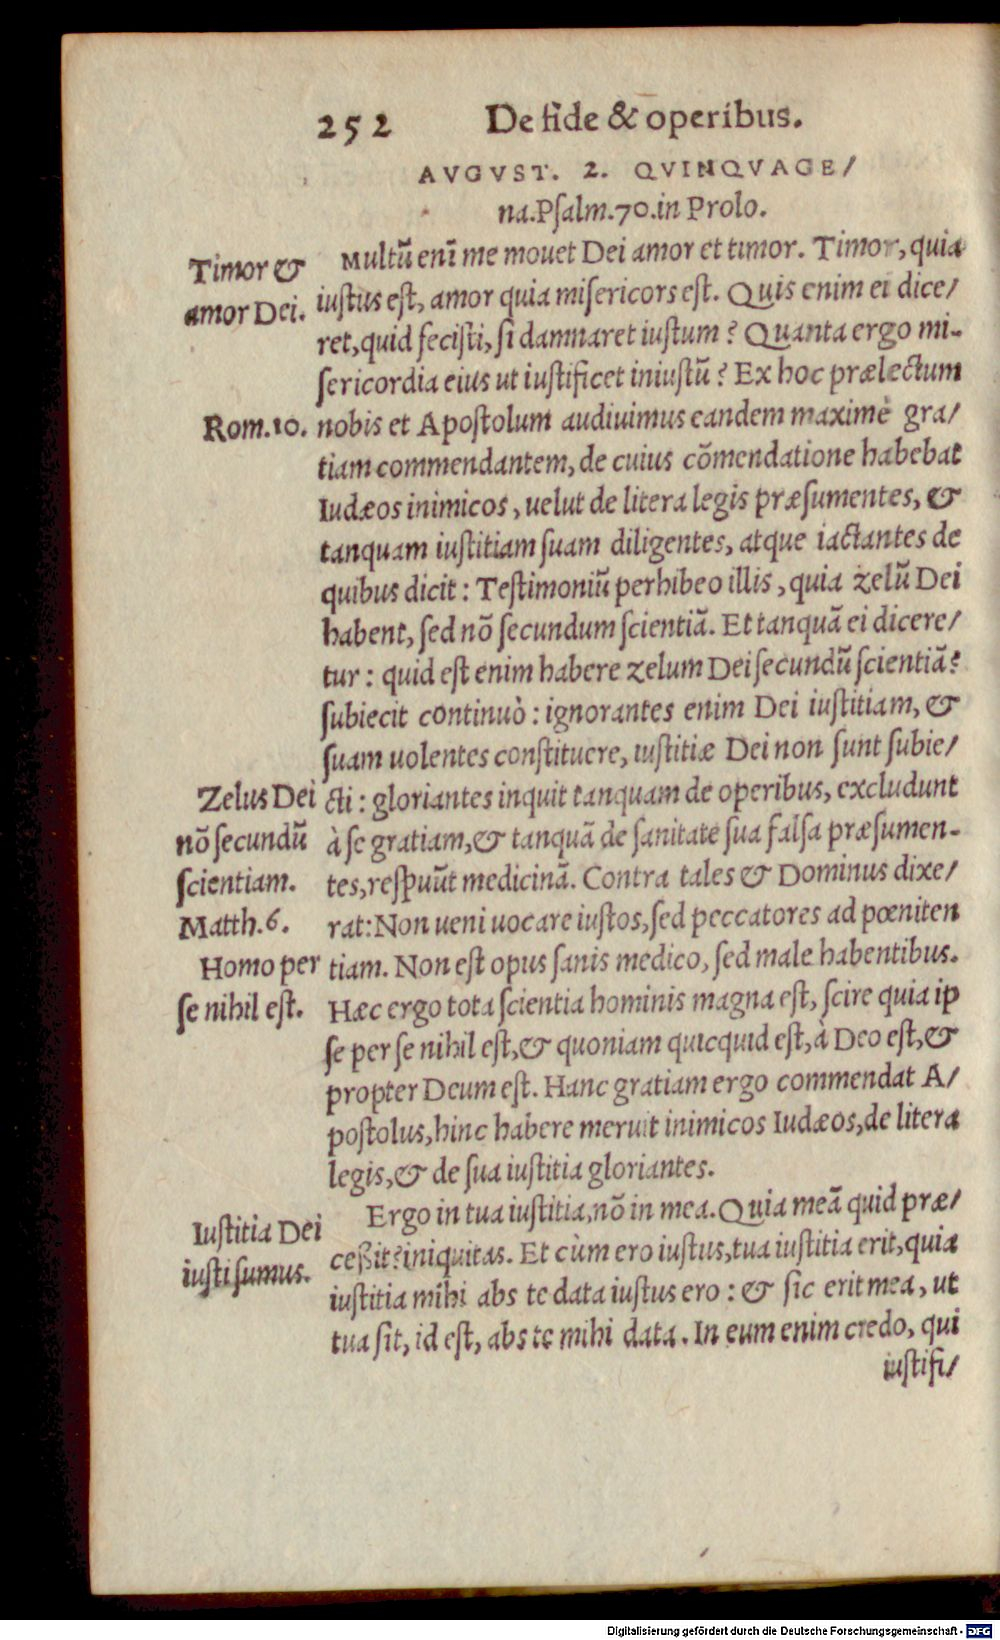 252 De fide & operibus.
AVGVST. 2. QVINQVAGE/
na.Pſalm.70.in Prolo.
Timor &
amor Dei.
Multũ enĩ me mouet Dei amor et timor. Timor, quia
iuſtus eſt, amor quia miſericors eſt. Quis enim ei dice/
ret,quid feciſti, ſi damnaret iuſtum? Quanta ergo mi-
ſericordia eius ut iuſtificet iniuſtũ? Ex hoc prælectum
Rom.10.
nobis et Apoſtolum audiuimus eandem maximè gra/
tiam commendantem, de cuius cõmendatione habebat
Iudæos inimicos, uelut de litera legis præſumentes, &
tanquam iuſtitiam ſuam diligentes, atque iactantes de
quibus dicit: Teſtimoniũ perhibeo illis, quia zelũ Dei
habent, ſed nõ ſecundum ſcientiã. Et tanquã ei dicere/
tur: quid eſt enim habere zelum Dei ſecundũ ſcientiã?
ſubiecit continuò: ignorantes enim Dei iuſtitiam, &
ſuam uolentes conſtituere, iuſtitiæ Dei non ſunt ſubie/
Zelus Dei
nõ ſecundũ
ſcientiam.
Matth.6.
cti: gloriantes inquit tanquam de operibus, excludunt
à ſe gratiam,& tanquã de ſanitate ſua falſa præſumen-
tes,reſpuũt medicinã. Contra tales & Dominus dixe/
rat:Non ueni uocare iuſtos,ſed peccatores ad pœniten
Homo per
ſe nihil eſt.
tiam. Non eſt opus ſanis medico, ſed male habentibus.
Hæc ergo tota ſcientia hominis magna eſt, ſcire quia ip
ſe per ſe nihil eſt,& quoniam quicquid eſt, à Deo eſt,&
propter Deum eſt. Hanc gratiam ergo commendat A/
poſtolus,hinc habere meruit inimicos Iudæos,de litera
legis,& de ſua iuſtitia gloriantes.
Iuſtitia Dei
iuſti ſumus.
Ergo in tua iuſtitia,nõ in mea. Quia meã quid præ/
ceßit?iniquitas. Et cùm ero iuſtus,tua iuſtitia erit,quia
iuſtitia mihi abs te data iuſtus ero: & ſic erit mea, ut
tua ſit, id eſt, abs te mihi data. In eum enim credo, qui
iuſtifi/
Digitalisierung gefördert durch die Deutsche Forschungsgemeinschaft - DFG